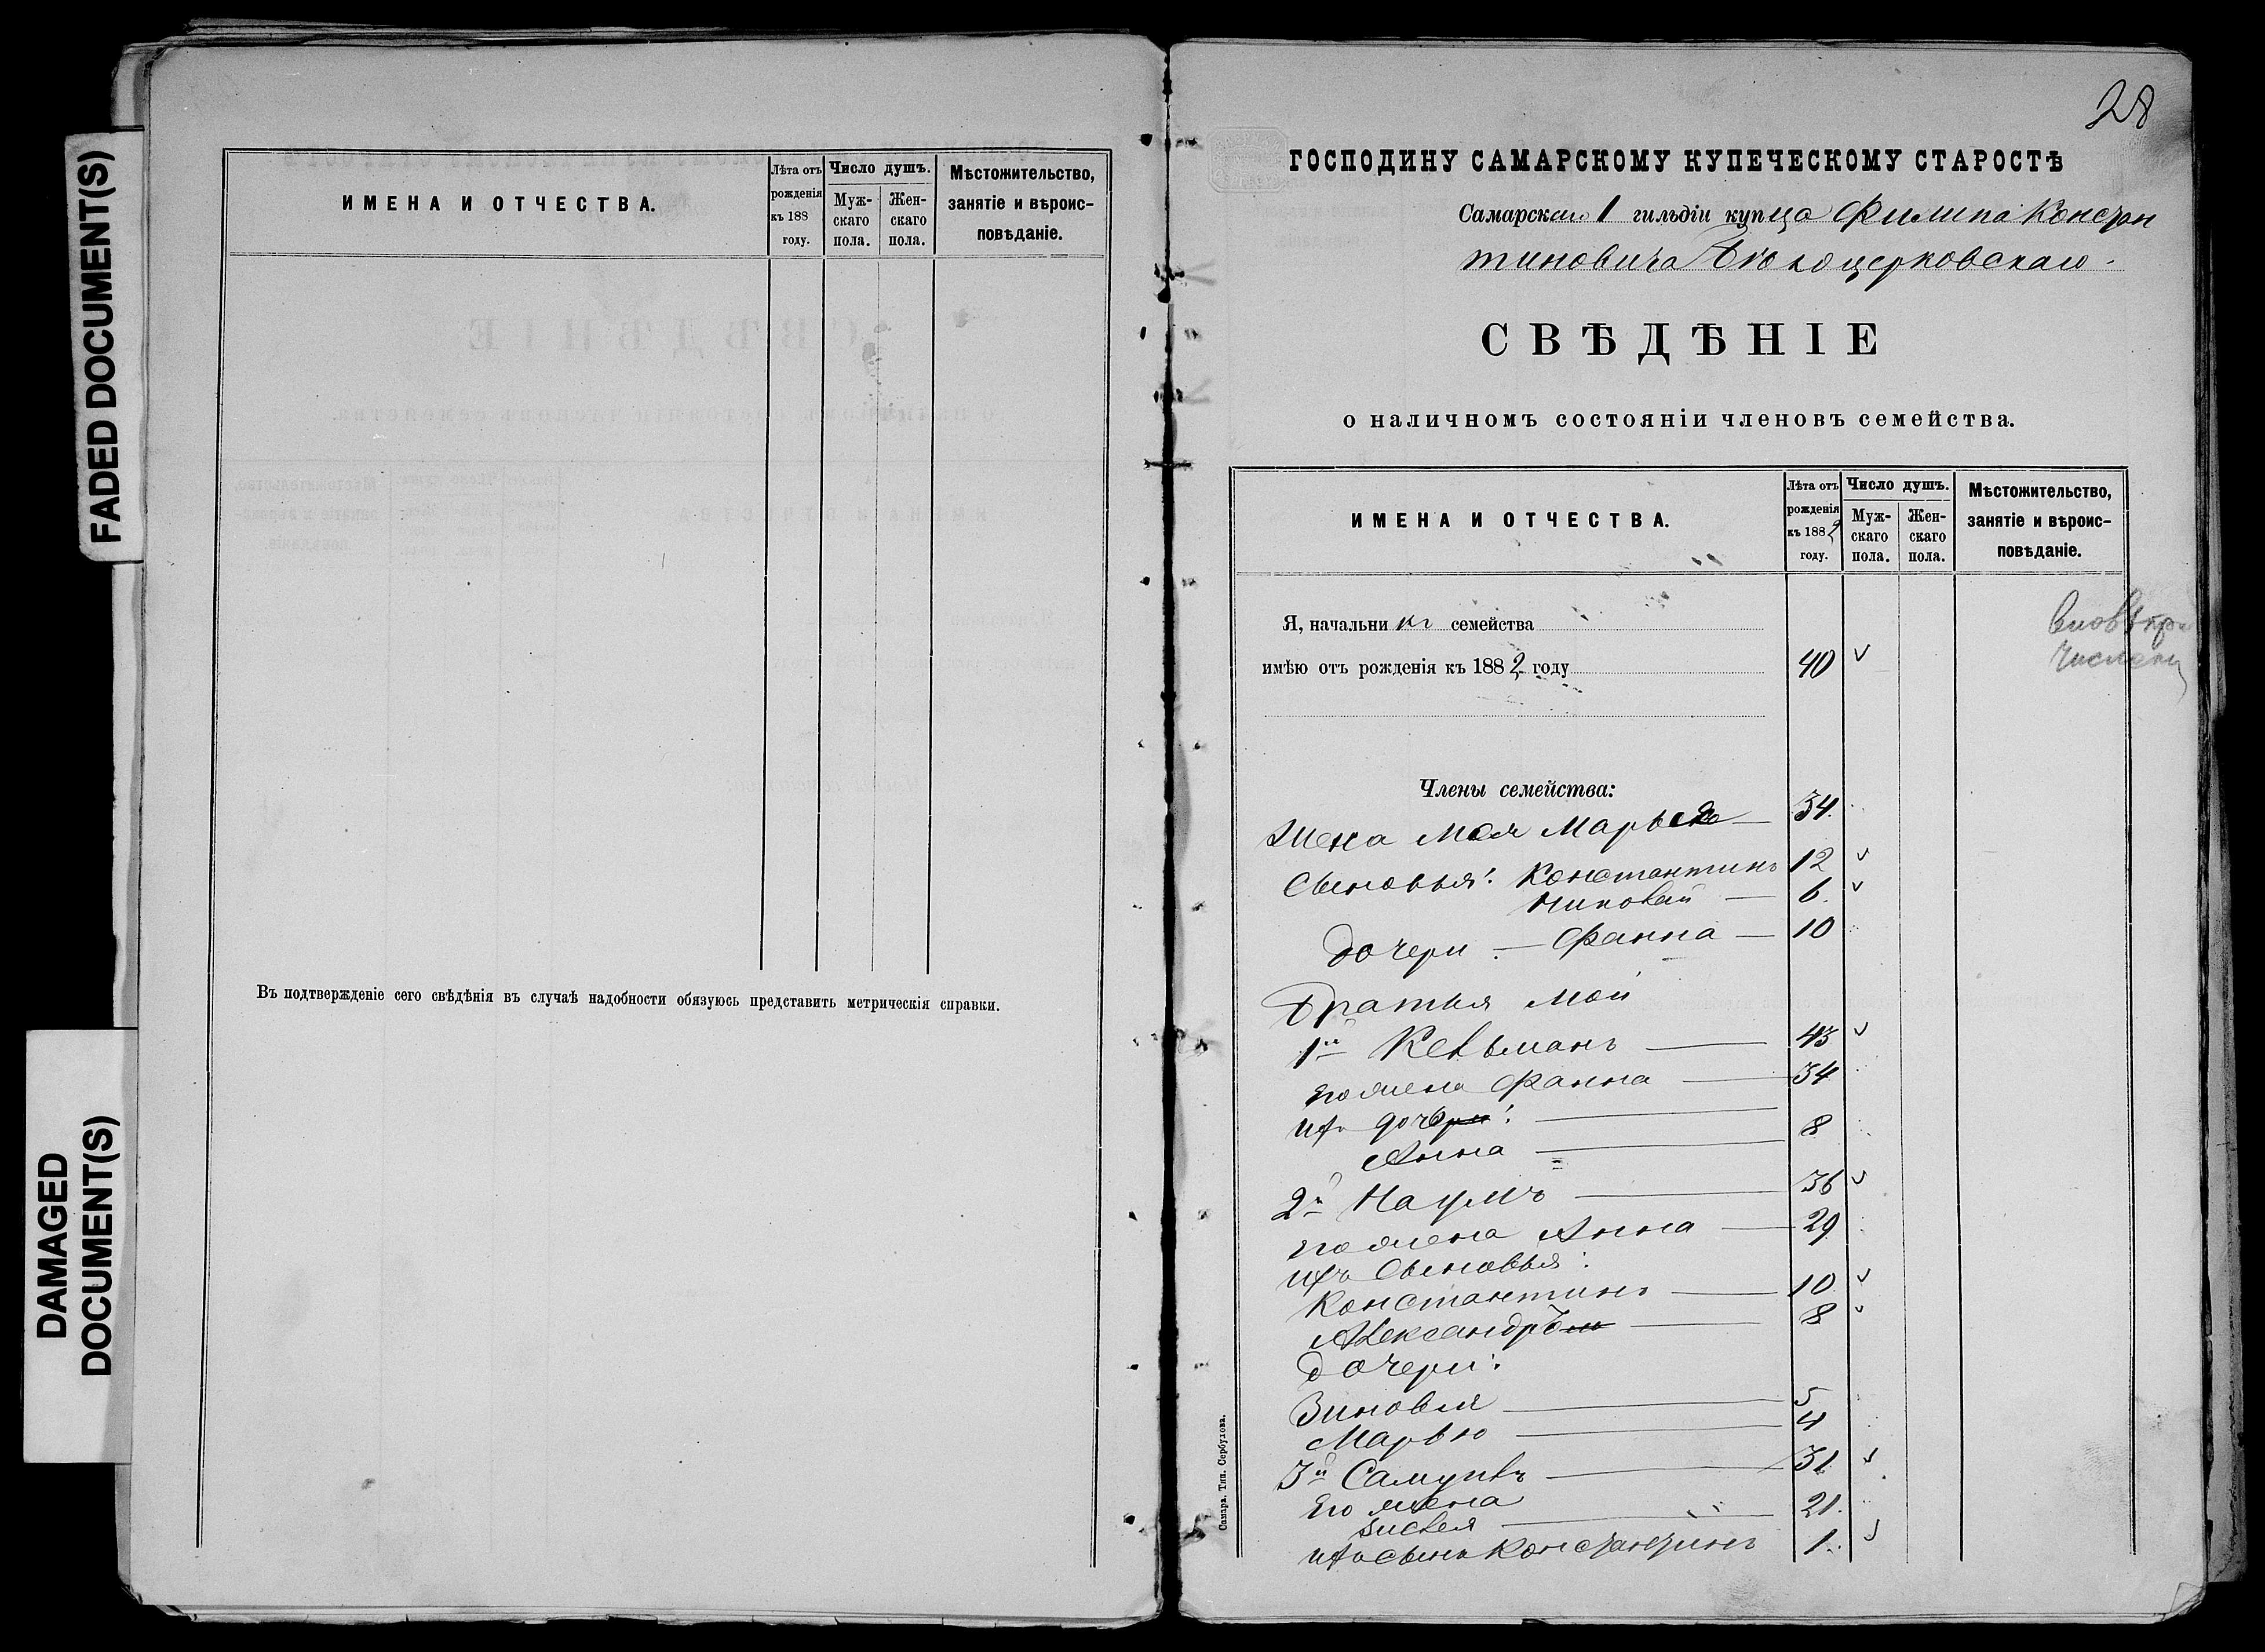 FADED DOCUMENT(S)
DAMAGED
DOCUMENT(S)
ИМЕНА И ОТЧЕСТВА.
Лѣта отъ
рожденія
къ 188
году.
Число душъ.
Муж-
скаго
пола.
Жен-
скаго
пола.
Мѣстожительство,
занятіе и вѣроис-
повѣданіе.
Въ подтвержденіе сего свѣдѣнія въ случаѣ надобности обязуюсь представить метрическія справки.
28
ГОСПОДИНУ САМАРСКОМУ КУПЕЧЕСКОМУ СТАРОСТѢ
Самарскаго 1 гильдіи купца Филипа Констан
тиновича Бѣлоцерковскаго.
СВѢДѢНІЕ
о наличномъ состояніи членовъ семейства.
ИМЕНА И ОТЧЕСТВА.
Лѣта отъ
рожденія
къ 1882
году.
Число душъ.
Муж-
скаго
пола.
Жен-
скаго
пола.
Мѣстожительство,
занятіе и вѣроис-
повѣданіе.
Я, начальникъ семейства
имѣю отъ рожденія къ 1882 году 40
вновь при
числены
Члены семейства:
Жена моя Марья — 34.
Сыновья: Константинъ 12
Николай — 6.
дочери — Фанна — 10
Братья мои
1й Кельманъ — 43
его жена Фанна — 34
ихъ дочь:
Анна — 8
2й Наумъ — 36
его жена Анна — 29
ихъ Сыновья:
Константинъ — 10
Александръ — 8
дочери:
Зиновья — 5
Марью — 4
3й Самуилъ — 31
его жена
— 21.
ихъ сынъ Константинъ 1.
Самара. Тип. Сербулова.